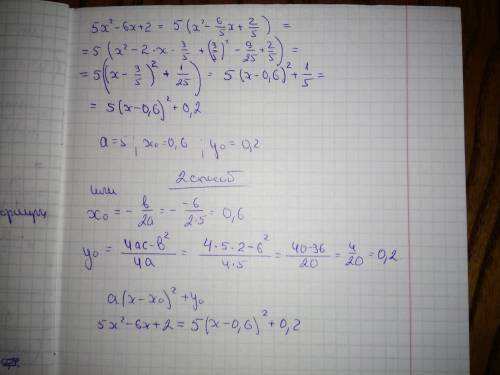 5x²-6x+2 = 5(x²-6/5x+2/5) =
=5(x²-2·x·3/5+(3/5)²-9/25+2/5) =
=5((x-3/5)²+1/25) = 5(x-0,6)²+1/5=
= 5(x-0,6)²+0,2
a=5; x₀=0,6; y₀=0,2
2способ
или
x₀=-b/2a=-(-6)/(2·5)=0,6
y₀=(4ac-b²)/4a=(4·5·2-6²)/(4·5)=(40-36)/20=4/20=0,2
a(x-x₀)²+y₀
5x²-6x+2=5(x-0,6)²+0,2